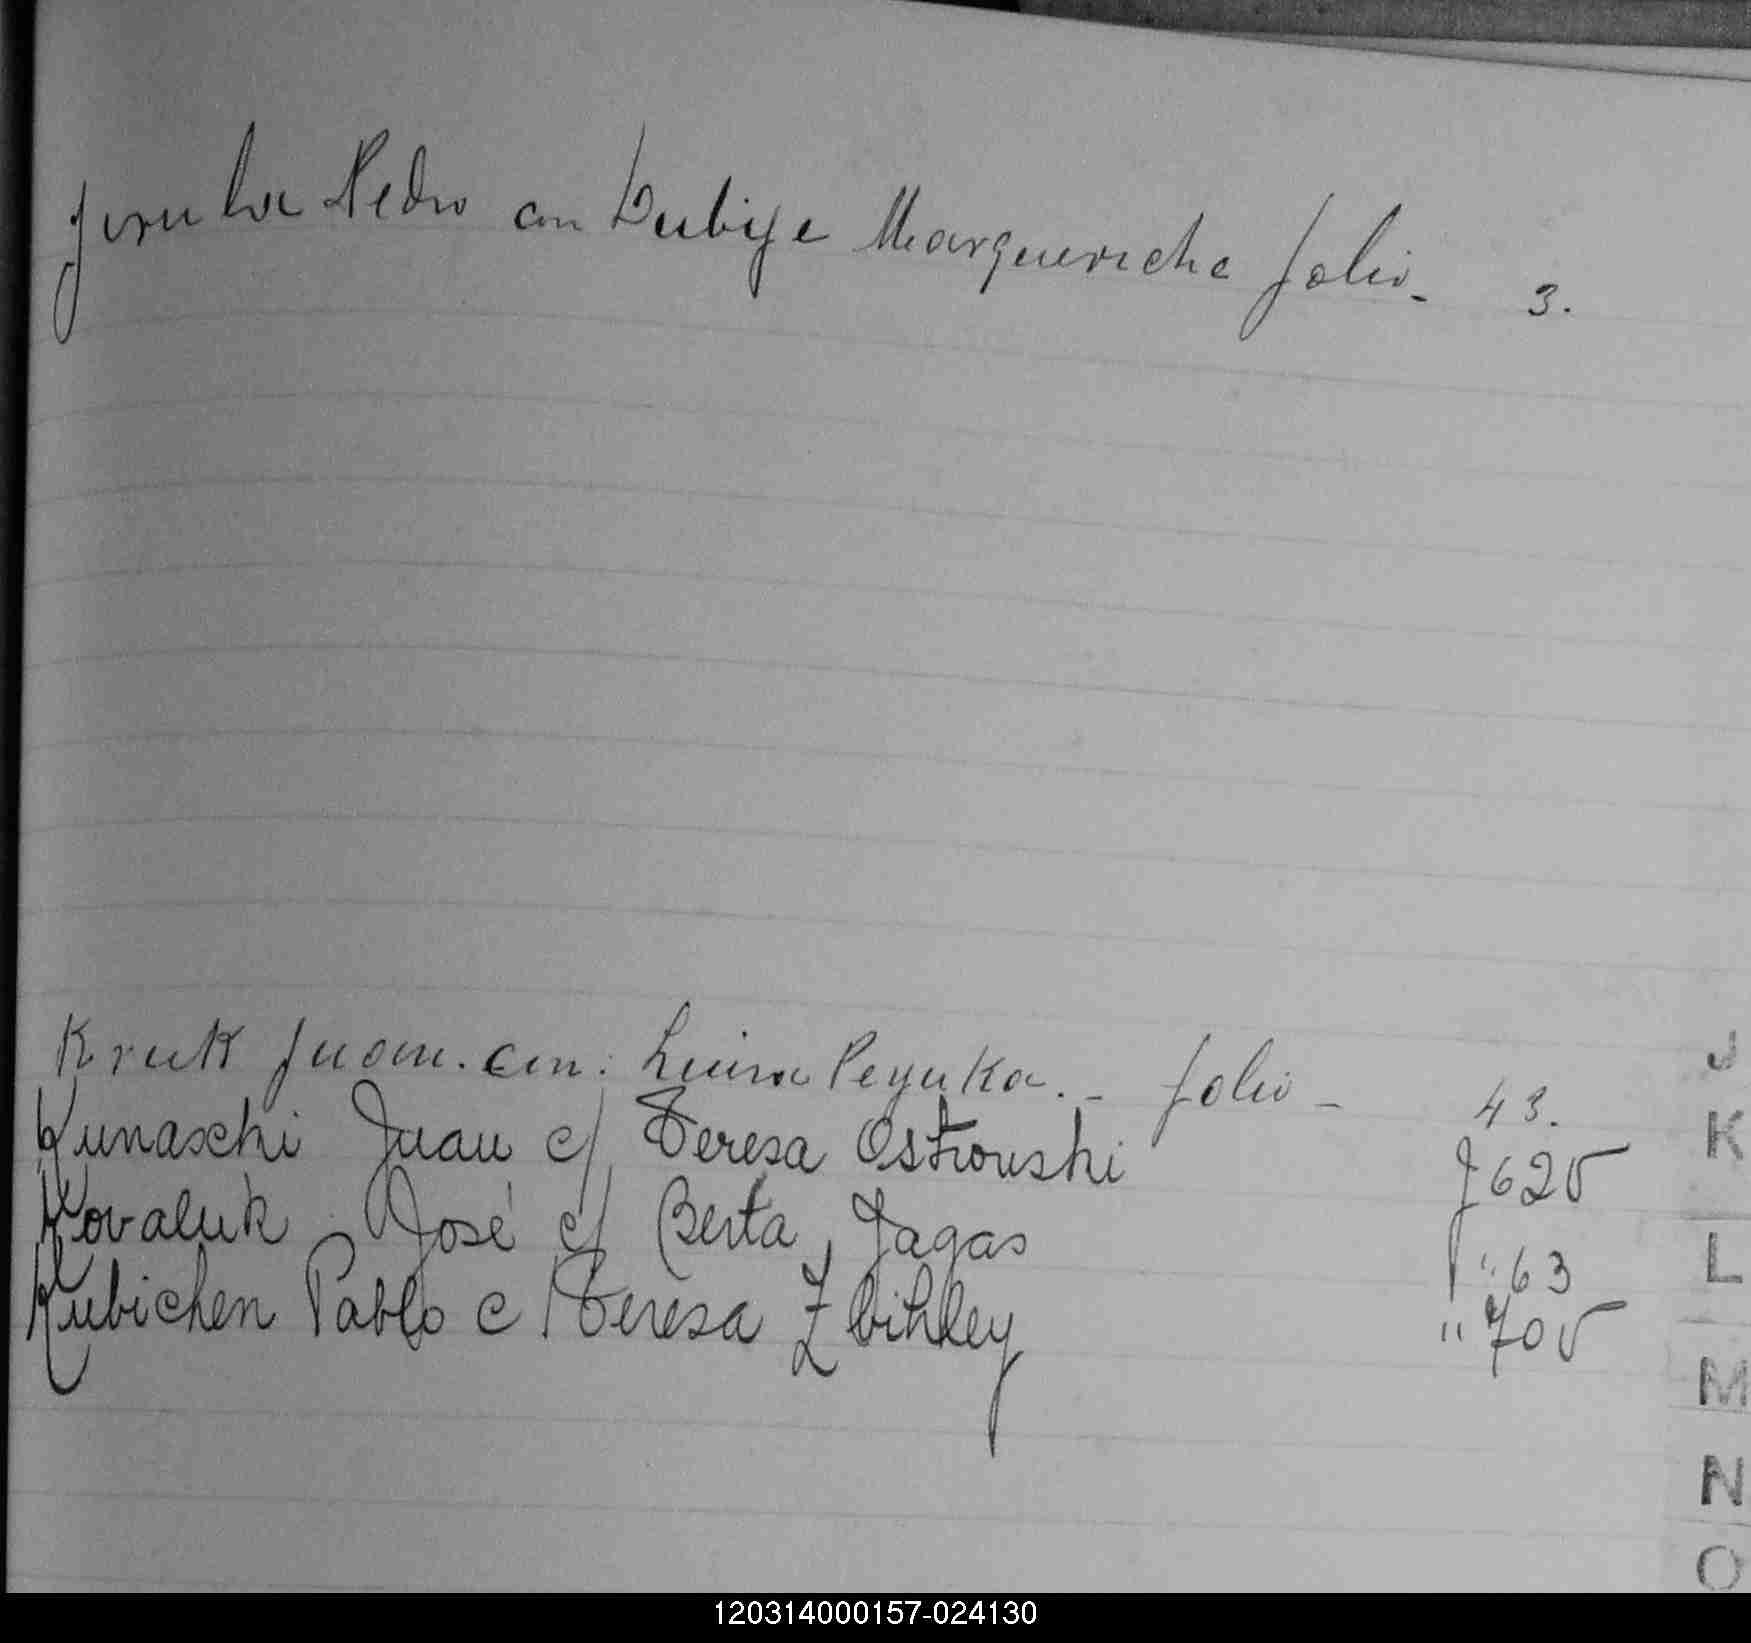 Pedro con Margueriche folio. 3.
Kruk Juan. con: Luisa Peyuka. - folio - 43.
Kunaschi Juan c/ Teresa Ostrouski f 62v
Kovaluk José c/ Berta Jagas " 63
Kubichen Pablo c/ Teresa Zbihley " 70v
J
K
L
M
N
O
120314000157-024130